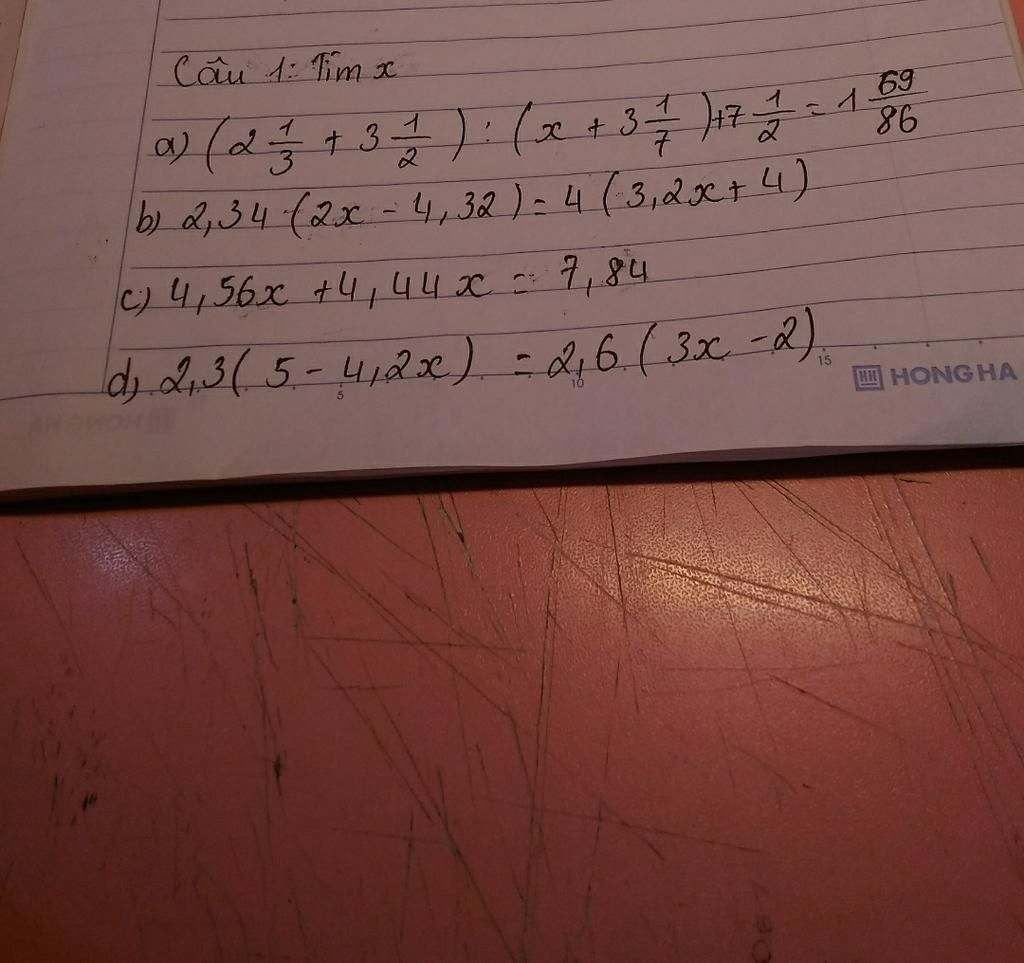 Câu 1: Tìm x
a) (2 1/3 + 3 1/2) : (x + 3 1/7) + 7 1/2 = 1 69/86
b) 2,34 · (2x - 4,32) = 4 (3,2x + 4)
c) 4,56x + 4,44x = 7,84
d) 2,3( 5 - 4,2x) = 2,6 (3x - 2)
5 10 15
HH HONG HA